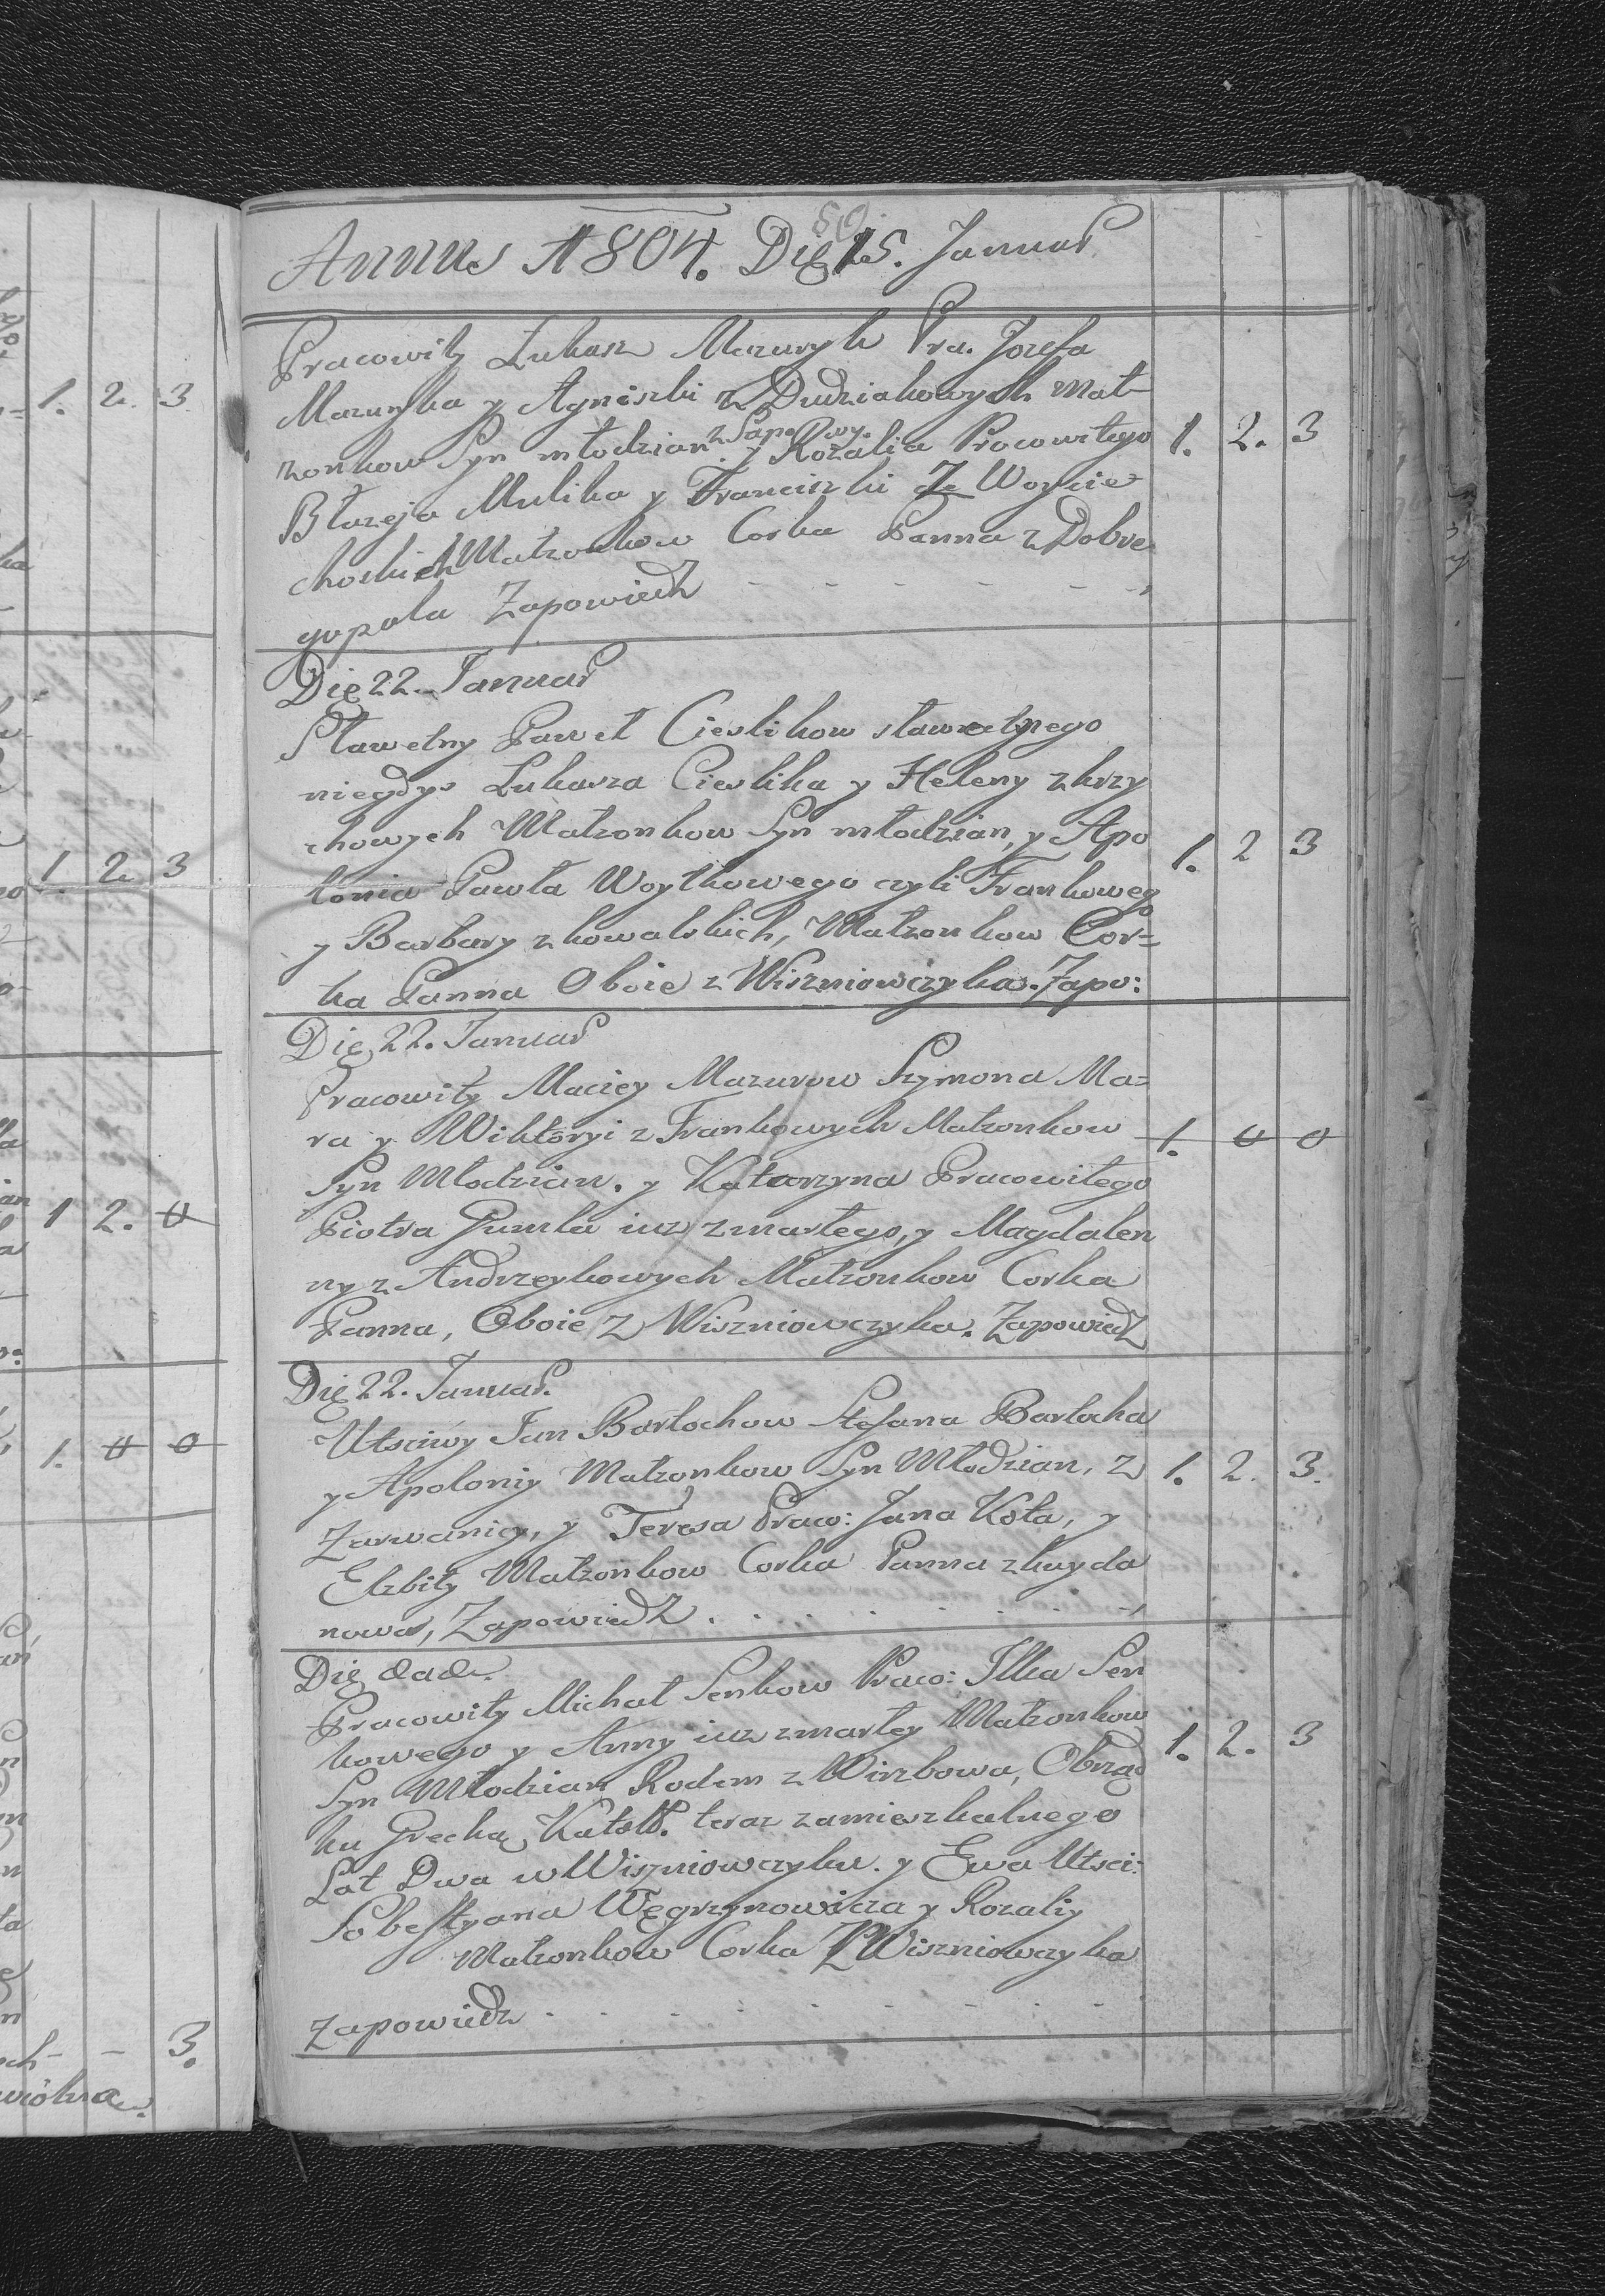 50.
Annus 1804. Die 15. Januar
Pracowity Łukasz Mazuryk Pra. Jozefa
Mazuryka y Agniszki z Dudziakowych Mał-
zonkow Syn młodzian z Sapowy. y Rozalia Pracowitego
1. 2. 3
Błazeja Mulika y Franciszki Ze Woycie
choskich Małzonkow Corka Panna z Dobre
gopola Zapowiedz
Die 22. Januar
Sławetny Paweł Cieslikow sławetnego
niegdys Lukasza Cieslika y Heleny z krzy
chowych Małzonkow Syn młodzian, y Apo
1. 2 3
lonia Pawła Woytkowego czyli Frankoweg
o
y Barbary z kowalskich, Małzonkow Cor=
ka Panna Oboie z Wiszniowczyka. Zapo:
Die 22. Januar
Pracowity Maciey Mazurow Szymona Ma=
ra y Wiktoryi z Frankowych Małzonkow
1. 0 0
Syn Młodzian. y Katarzyna Pracowitego
Piotra Gumla iuz zmarłego, y Magdalen
ny z Andrzeykowych Małzonkow Corka
Panna, Oboie Z Wiszniowczyka. Zapowiedz
Die 22. Januar.
Utsciwy Jan Barłochow Stefana Barłocha
y Apoloniy Małzonkow Syn Młodzian, z
1. 2. 3.
Zarwanicy, y Teresa Praco: Jana Kota, y
Elzbity Małzonkow Corka Panna z kayda
nowa, Zapowiedz
Die eade.
Pracowity Michał Senkow Praco: Ilka Sen
kowego y Anny iuz zmarłey Małzonkow
1. 2. 3
Syn Młodzian Rodem z Wirzbowa, Obrząd
ku Grecka Katoll. teraz zamieszkalnego
Lat Dwa w Wiszniowczyku. y Ewa Utsci:
Sobestyana Węgrzynowicza y Rozaliy
Małzonkow Corka Z Wiszniowczyka
zapowiedz
1. 2. 3.
1 2 3
1 2. 0
1. 0 0
3.